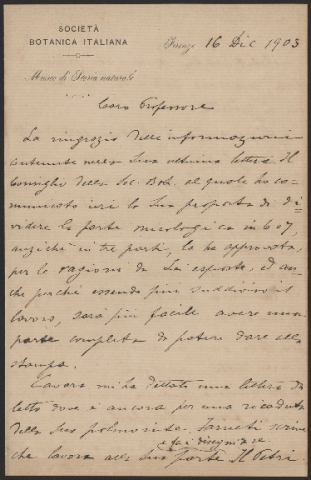 SOCIETÀ
BOTANICA ITALIANA
Museo di Storia naturale
Firenze 16 Dic 1903
Caro Professore
La ringrazio delle informazioni
contenute nella Sua ultima lettera. Il
Consiglio della Soc. Bot. al quale ho co-
municato ieri la Sua proposta di di-
videre la parte micologica in 6 o 7,
anzichè in tre parti, la ha approvata,
per le ragioni da Lei esposte, ed an-
che perchè essendo più suddiviso il
lavoro, sarà più facile avere una
parte completa da potere dare alla
stampa.
Cavara mi ha dettato una lettera da
letto dove è ancora per una ricaduta
della Sua polmonite. Farneti scrive
che lavora alla Sua parte e fa i disegni da se. Il Petri